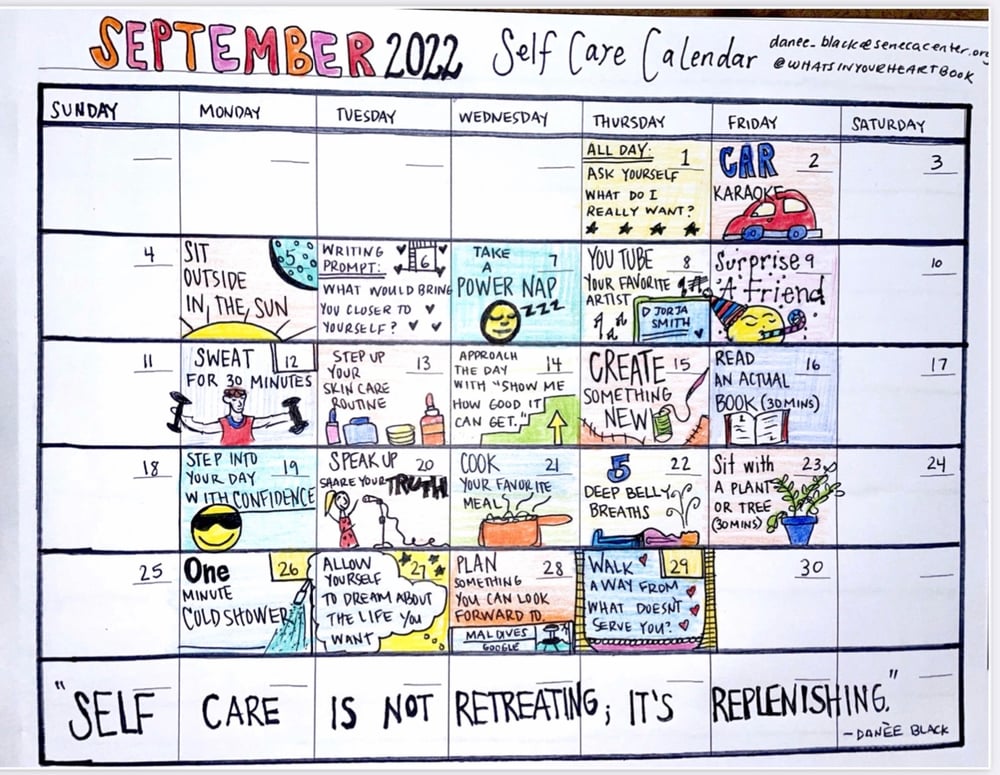 SEPTEMBER 2022 Self Care Calendar
danee_black@senecacenter.org
@WHATSINYOURHEARTBOOK
SUNDAY MONDAY TUESDAY WEDNESDAY THURSDAY FRIDAY SATURDAY
ALL DAY: 1
ASK YOURSELF
WHAT DO I
REALLY WANT?
CAR 2
KARAOKE
3
4
SIT 5
OUTSIDE
IN THE SUN
WRITING
PROMPT: 6
WHAT WOULD BRING
YOU CLOSER TO
YOURSELF?
TAKE 7
A
POWER NAP
ZZZ
YOUTUBE 8
YOUR FAVORITE
ARTIST
JORJA
SMITH
Surprise 9
A friend
10
11
SWEAT 12
FOR 30 MINUTES
STEP UP 13
YOUR
SKIN CARE
ROUTINE
APPROACH 14
THE DAY
WITH "SHOW ME
HOW GOOD IT
CAN GET."
CREATE 15
SOMETHING
NEW
READ 16
AN ACTUAL
BOOK (30MINS)
17
18
STEP INTO 19
YOUR DAY
WITH CONFIDENCE
SPEAK UP 20
SHARE YOUR TRUTH
COOK 21
YOUR FAVORITE
MEAL
5 22
DEEP BELLY
BREATHS
Sit with 23
A PLANT
OR TREE
(30MINS)
24
25
One 26
MINUTE
COLD SHOWER
ALLOW 27
YOURSELF
TO DREAM ABOUT
THE LIFE YOU
WANT
PLAN 28
SOMETHING
YOU CAN LOOK
FORWARD TO.
MALDIVES
GOOGLE
WALK 29
AWAY FROM
WHAT DOESN'T
SERVE YOU?
30
"SELF CARE IS NOT RETREATING; IT'S REPLENISHING."
-DANÈE BLACK